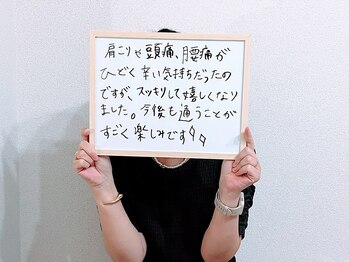 肩こりや頭痛、腰痛が
ひどく辛い気持ちだったの
ですが、スッキリして嬉しくなり
ました。今後も通うことが
すごく楽しみです!!